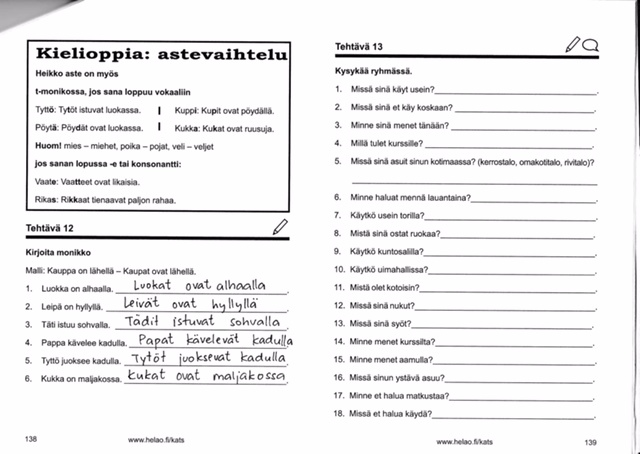 Kielioppia: astevaihtelu
Heikko aste on myös
t-monikossa, jos sana loppuu vokaaliin
Tyttö: Tytöt istuvat luokassa. | Kuppi: Kupit ovat pöydällä.
Pöytä: Pöydät ovat luokassa. | Kukka: Kukat ovat ruusuja.
Huom! mies – miehet, poika – pojat, veli – veljet
jos sanan lopussa -e tai konsonantti:
Vaate: Vaatteet ovat likaisia.
Rikas: Rikkaat tienaavat paljon rahaa.
Tehtävä 12
Kirjoita monikko
Malli: Kauppa on lähellä – Kaupat ovat lähellä.
1. Luokka on alhaalla. Luokat ovat alhaalla
2. Leipä on hyllyllä. Leivät ovat hyllyllä
3. Täti istuu sohvalla. Tädit istuvat sohvalla
4. Pappa kävelee kadulla. Papat kävelevät kadulla
5. Tyttö juoksee kadulla. Tytöt juoksevat kadulla
6. Kukka on maljakossa. Kukat ovat maljakossa
138 www.helao.fi/kats
Tehtävä 13
Kysykää ryhmässä.
1. Missä sinä käyt usein?
2. Missä sinä et käy koskaan?
3. Minne sinä menet tänään?
4. Millä tulet kurssille?
5. Missä sinä asuit sinun kotimaassa? (kerrostalo, omakotitalo, rivitalo)?
6. Minne haluat mennä lauantaina?
7. Käytkö usein torilla?
8. Mistä sinä ostat ruokaa?
9. Käytkö kuntosalilla?
10. Käytkö uimahallissa?
11. Mistä olet kotoisin?
12. Missä sinä nukut?
13. Missä sinä syöt?
14. Minne menet kurssilta?
15. Minne menet aamulla?
16. Missä sinun ystävä asuu?
17. Minne et halua matkustaa?
18. Missä et halua käydä?
www.helao.fi/kats 139